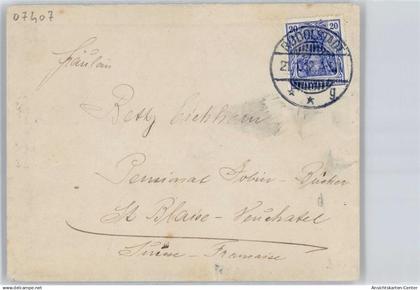 07407
20 20
RUDOLSTADT
* * g
Fräulein
Betty Eichhorn
Pensionat Jobin-Bücher
St Blaise-Neuchatel
Suisse-Francaise
Ansichtskarten-Center